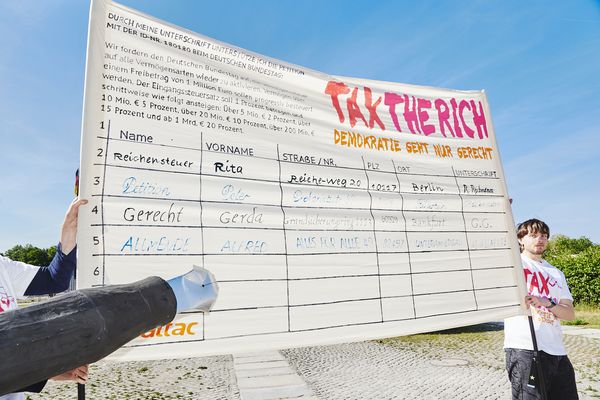 DURCH MEINE UNTERSCHRIFT UNTERSTÜTZE ICH DIE PETITION
MIT DER ID-NR. 180180 BEIM DEUTSCHEN BUNDESTAG:
Wir fordern den Deutschen Bundestag auf, die
auf alle Vermögensarten wieder zu Vermögen über
einem Freibetrag von 1 Million Euro sollen progressiv besteuert
werden. Der Eingangssteuersatz soll 1 Prozent betragen und
schrittweise wie folgt ansteigen: Über 5 Mio. € 2 Prozent, über
10 Mio. € 5 Prozent, über 20 Mio. € 10 Prozent, über 200 Mio. €
15 Prozent und ab 1 Mrd. € 20 Prozent.
TAX THE RICH
DEMOKRATIE GEHT NUR GERECHT
1 Name VORNAME STRAßE/NR. PLZ ORT UNTERSCHRIFT
2 Reichensteuer Rita Reiche-weg 20 10217 Berlin
3 Petition Peter
4 Gerecht Gerda Frankfurt G.G.
5 ALLMENDE ALFRED ALLES FÜR ALLE
6
attac
TAX